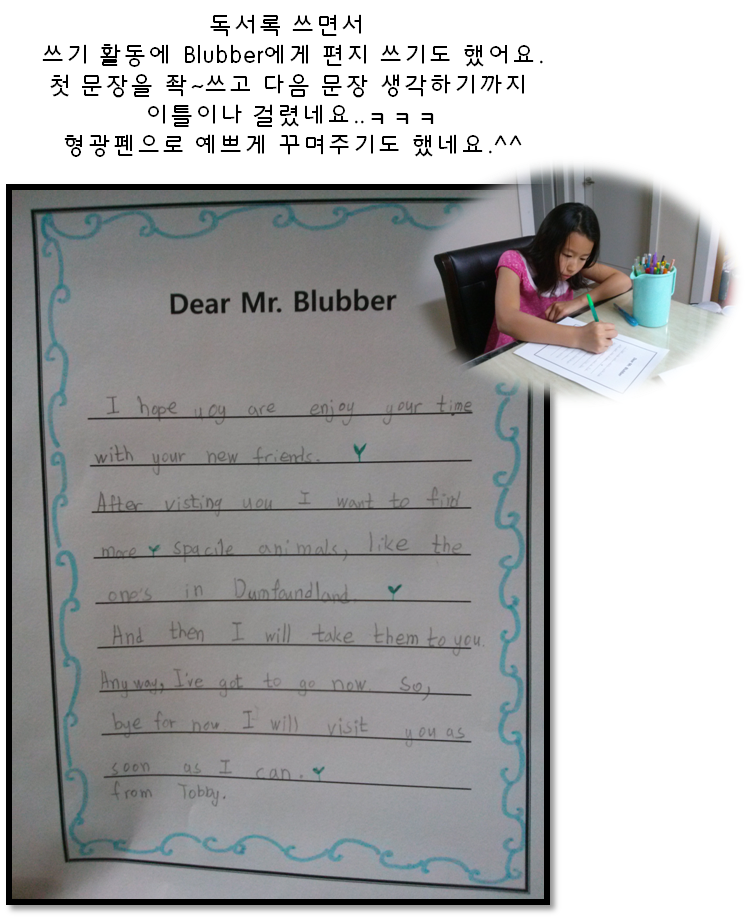 독서록 쓰면서
쓰기 활동에 Blubber에게 편지 쓰기도 했어요.
첫 문장을 쫙~쓰고 다음 문장 생각하기까지
이틀이나 걸렸네요..ㅋㅋㅋ
형광펜으로 예쁘게 꾸며주기도 했네요.^^
Dear Mr. Blubber
I hope uoy are enjoy your time
with your new friends.
After visting uou I want to find
more spacile animals, like the
one's in Dumfoundland.
And then I will take them to you.
Any way, I've got to go now. So,
bye for now. I will visit you as
soon as I can.
from Tobby.